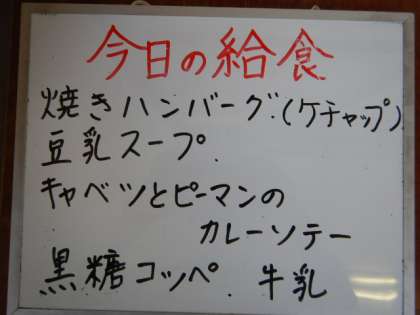 今日の給食
焼きハンバーグ.(ケチャップ)
豆乳スープ.
キャベツとピーマンの
カレーソテー
黒糖コッペ. 牛乳